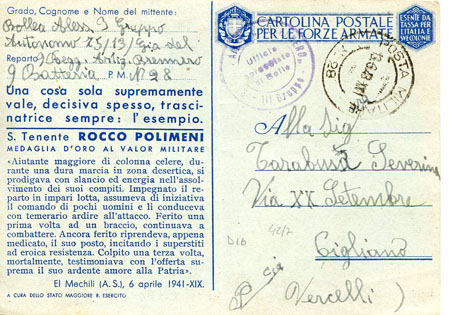 Grado, Cognome e Nome del mittente:
Bollea Aless. 3 Gruppo
Autonomo 75/13 / Gia del
Reparto 9 Regg. Artig.
9 Batteria P. M. N° 98
Una cosa sola supremamente
vale, decisiva spesso, trasci-
natrice sempre: l'esempio.
S. Tenente ROCCO POLIMENI
MEDAGLIA D'ORO AL VALOR MILITARE
«Aiutante maggiore di colonna celere, du-
rante una dura marcia in zona desertica, si
prodigava con slancio ed energia nell'assol-
vimento dei suoi compiti. Impegnato il re-
parto in impari lotta, assumeva di iniziativa
il comando di pochi uomini e li conduceva
con temerario ardire all'attacco. Ferito una
prima volta ad un braccio, continuava a
combattere. Ancora ferito riprendeva, appena
medicato, il suo posto, incitando i superstiti
ad eroica resistenza. Colpito una terza volta,
mortalmente, testimoniava con l'offerta su-
prema il suo ardente amore alla Patria».
El Mechili (A. S.), 6 aprile 1941-XIX.
A CURA DELLO STATO MAGGIORE R. ESERCITO
CARTOLINA POSTALE
PER LE FORZE ARMATE
ESENTE DA
TASSA PER
L'ITALIA E
COLONIE
POSTA MILITARE
N. 98
Ufficio
Gruppo
Alla Sig
Tarabusa Severina
Via XX Setembre
Cigliano
P cia
Vercelli)